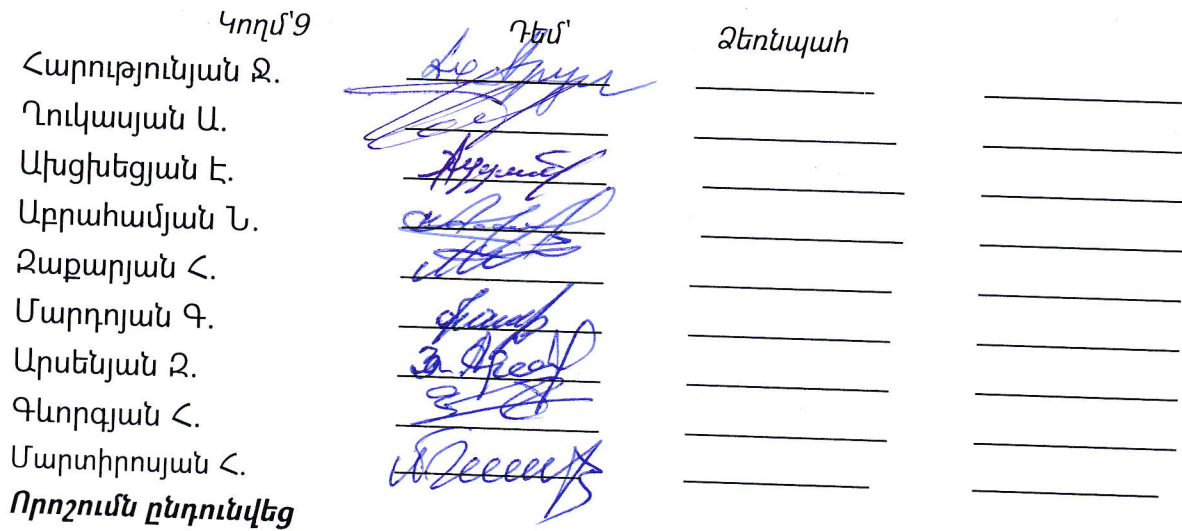 Կողմ՝9 Դեմ՝ Ձեռնպահ
Հարությունյան Ջ.
Ղուկասյան Ա.
Ախցխեցյան Է.
Աբրահամյան Ն.
Զաքարյան Հ.
Մարդոյան Գ.
Արսենյան Զ.
Գևորգյան Հ.
Մարտիրոսյան Հ.
Որոշումն ընդունվեց